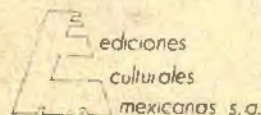 ediciones
culturales
mexicanas s.a.